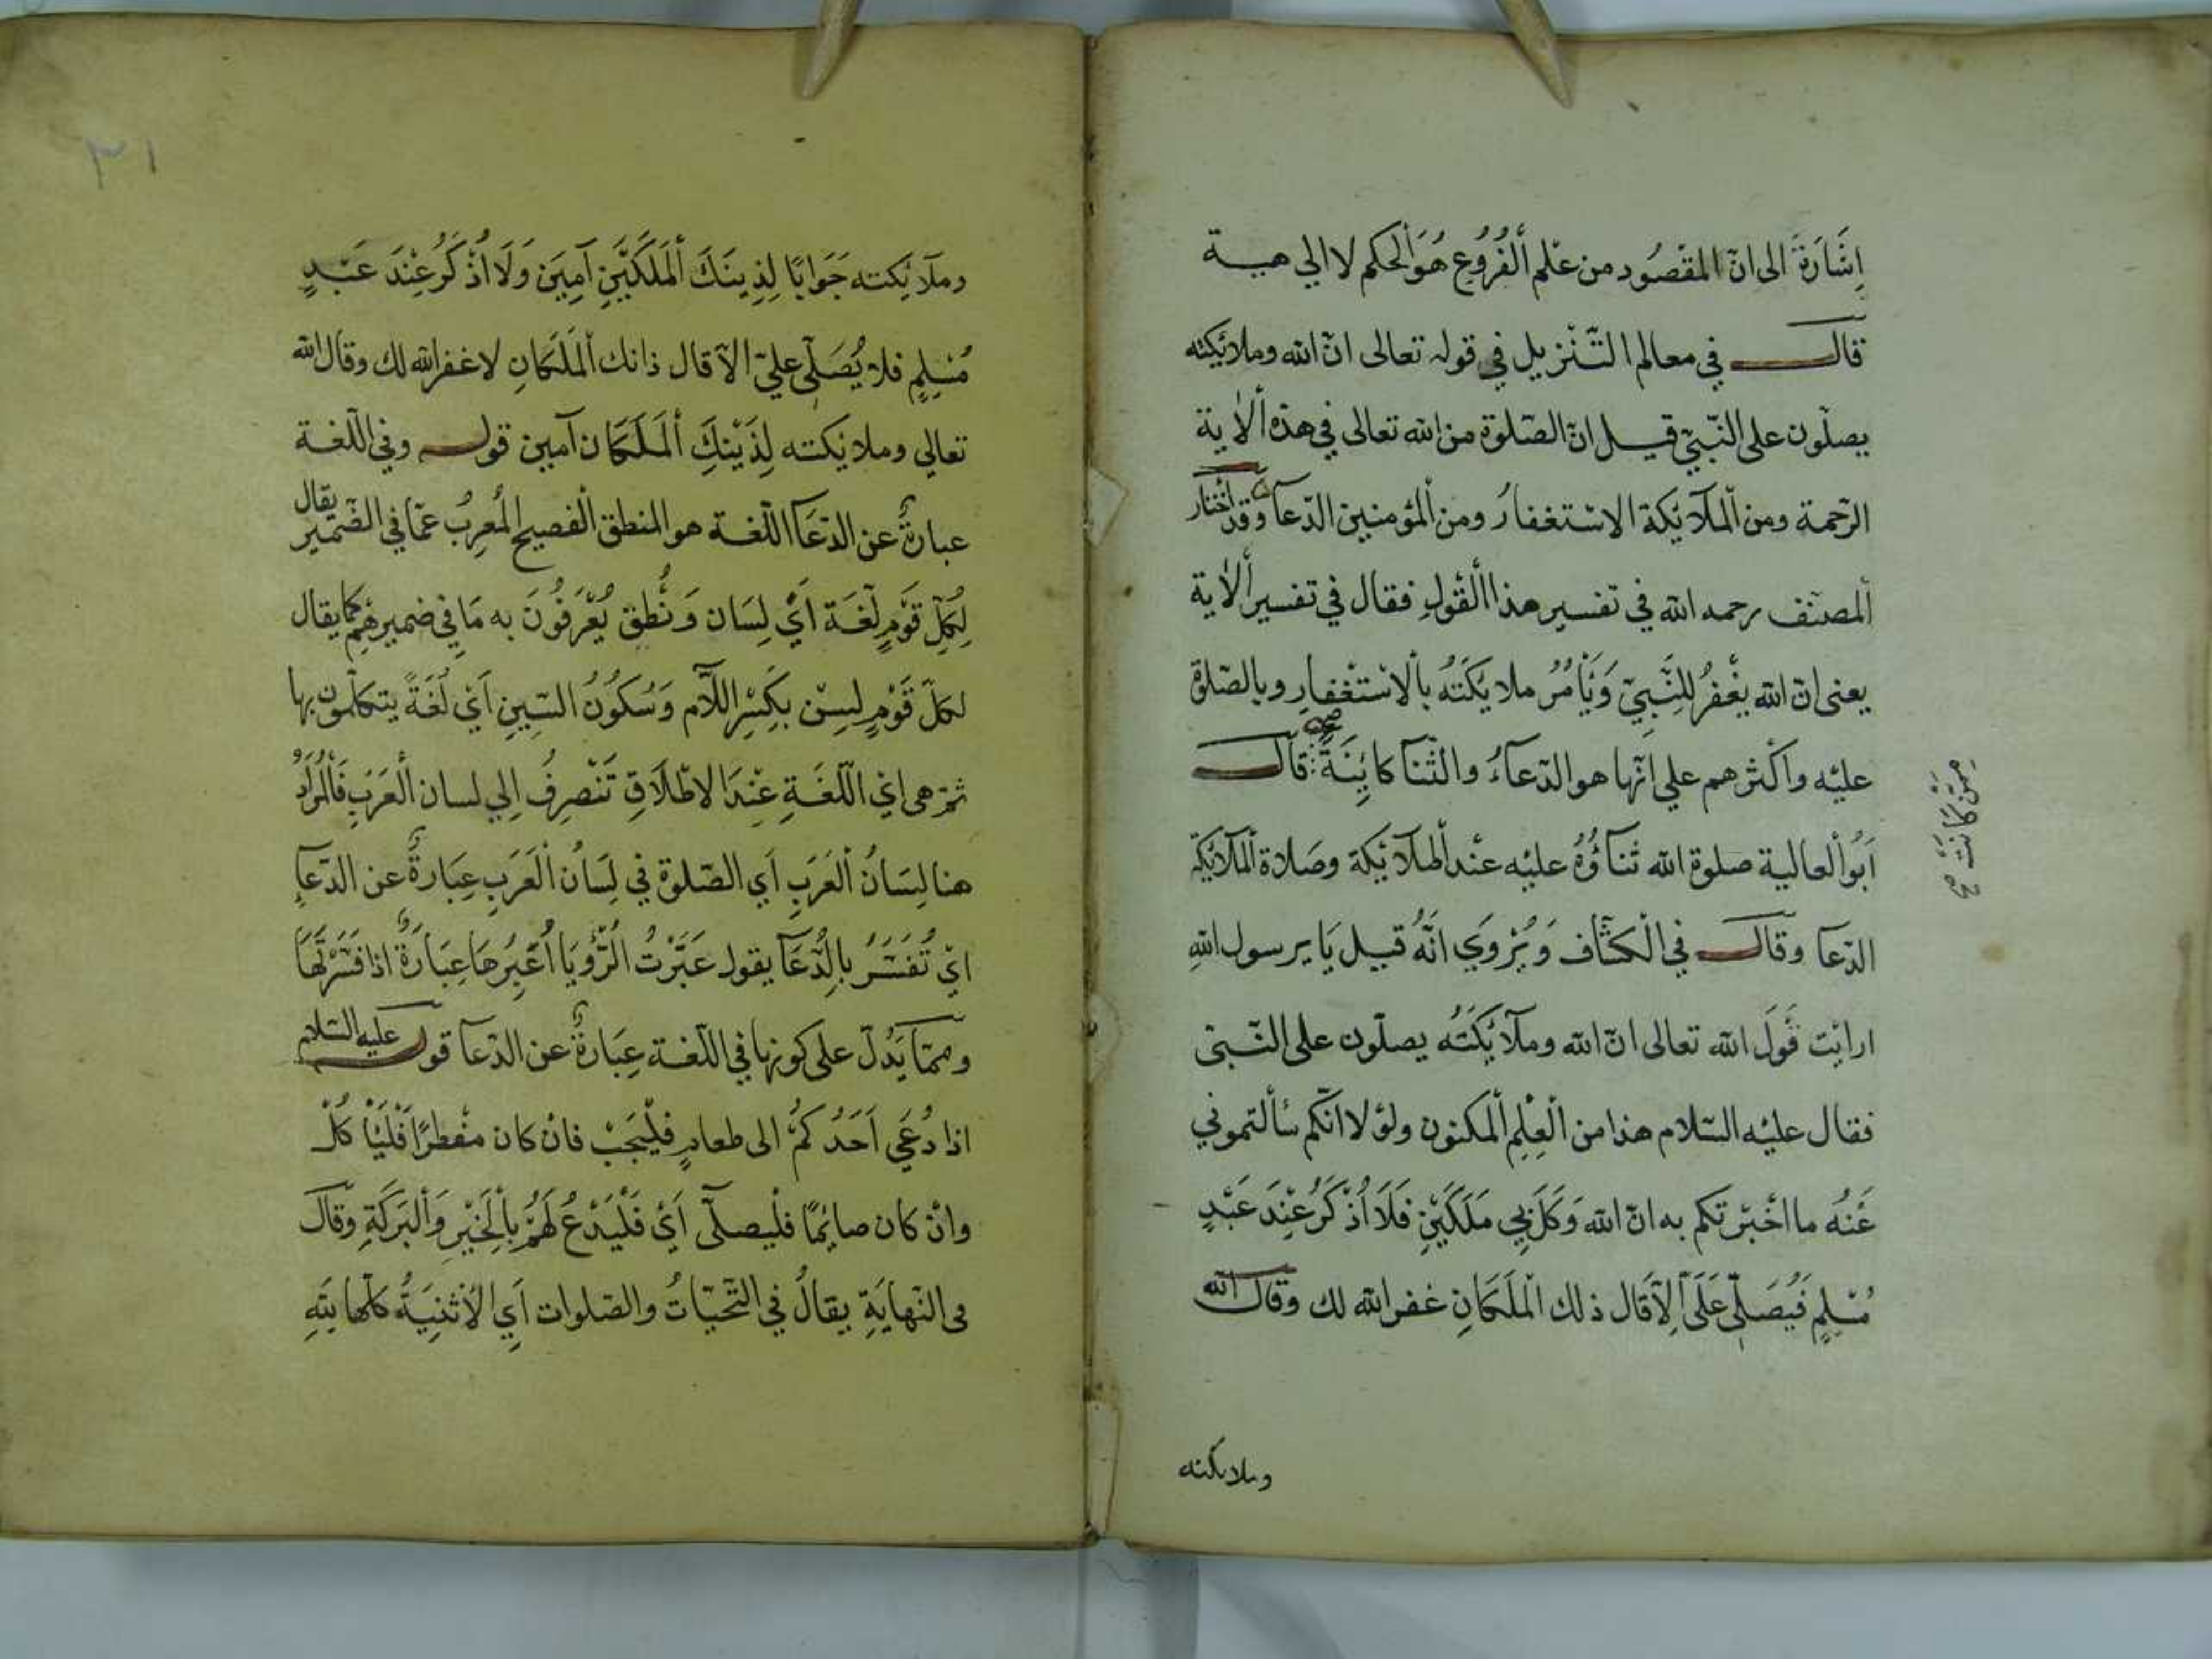 إِشَارَةً الى انّ المقْصُود من عْلم ألْفُرُوع هُوَ ألحكم لا الي هية
قال في معالم التّنْزيل في قوله تعالى انّ الله وملائكته
يصلّون على النّبيّ قيل انّ الصّلوة من الله تعالى في هذه ألأية
الرّحمة ومن ألملآئكة الاسْتغفارُ ومن ألمؤمنين الدّعآ وقد أختار
ألمصنّف رحمه الله في تفسير هذا ألقول فقال في تفسير ألأية
يعنى انّ الله يغْفرُ للنَّبِيّ وَيَأمُرُ ملايكَتُه بألاسْتغْفارِ وبالصّلوة
عليْه وأكْثرهم علي انّها هو الدّعآءُ والثّنآ كايِنَةً قال
ممّن كَانَتْ صح
أبُو ألعالية صلوة الله ثنآؤُهُ عليْه عنْد ألملآئكة وصَلاة ألملآئكة
الدّعآ وقال في الْكشّاف وَيُرْوَي انَّهُ قيل يَا رسول اللهِ
ارايْت قَولَ الله تعالى انّ الله وملآئِكَتُه يصلّون على النّبيّ
فقال عليْه السّلام هذا من ألْعِلْمِ ألْمكنون ولوْلا انّكم سألتموني
عَنْهُ ما اخْبرْتكم به انّ الله وَكَلَ بِي مَلَكَيْنِ فَلَا أُذْكَرُ عِنْدَ عَبْدٍ
مُسْلِمٍ فَيُصَلّي عَلَيّ إلّا قَال ذلك ألْمَلَكَانِ غفر الله لك وقال الله
وملائكته
٣١
وملآئكته جَوَابًا لِذينَكَ ألْمَلَكَيْنِ آمِيَن وَلَا أُذْكَرُ عِنْدَ عَبْدٍ
مُسْلِمٍ فلا يُصَلّي عليّ الّا قال ذانك ألْمَلَكَانِ لا غفر الله لك وقال الله
تعالي وملائكته لِذَيْنِكَ ألْمَلَكَان آمين قول وفي اللّغة
عبارةٌ عن الدّعآ اللّغة هو المنطق الفصيح المُعرِبُ عمّا في الضّمير يقال
لِكُلِّ قَوْمٍ لُغَة أيْ لِسَان وَنُطْق يُعْرَفُونَ به مَا في ضميرهِم كما يقال
لكلّ قَوْمٍ لِسْن بكَسْرِ اللاَّم وَسُكوُنُ السّينِ أيْ لُغَةً يتكلّمون بها
ثمّ هى اي اللّغَةِ عِنْدَ الاطْلَاقِ تَنْصرِفُ اِلي لسان ألْعَرَبِ فَألْمُرَادُ
هنا لِسَانُ ألْعَرَبِ أي الصّلوة في لِسَانُ ألْعَرَبِ عِبَارةٌ عن الدّعآءِ
ايْ تُفَسّرُ بِالدُّعَآ يقول عَبّرْتُ الرُّؤْيَا أُعَبِّرُهَا عِبَارَةً اذا فَسّرْتَهَا
وممّا يَدُلّ على كونها في اللّغة عِبَارةٌ عن الدّعآ قول عليه السّلام
اذا دُعِيَ أحَدُكُمْ الى طعامٍ فلْيُجبْ فانْ كان مفْطرًا فَلْيَأْكُلْ
وانْ كان صايمًا فلْيصلّي أيْ فَلْيَدْعُ لَهُمْ بِألْخَيْرِ وَألْبَرَكَةِ وقَالَ
في النّهايَةِ يقالُ في التّحيّاتُ والصّلوات أيِ الأثْنِيَةُ كلّها لِلهِ